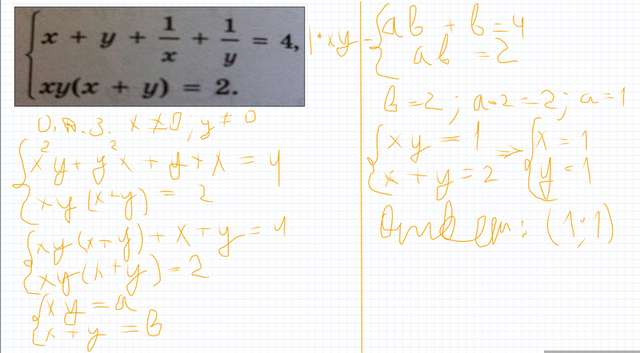 x + y + 1/x + 1/y = 4, | · xy
xy(x + y) = 2.
О.Д.З. x ≠ 0; y ≠ 0
x²y + y²x + y + x = 4
xy (x+y) = 2
xy (x+y) + x + y = 4
xy (x+y) = 2
xy = a
x + y = b
ab + b = 4
ab = 2
b = 2; a·2 = 2; a = 1
xy = 1
x + y = 2
=> x = 1
y = 1
Ответ: (1;1)